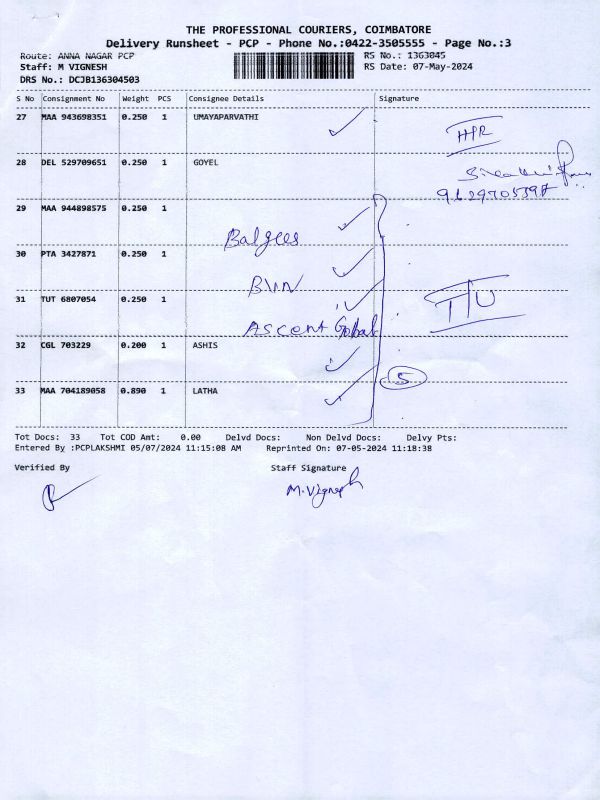 THE PROFESSIONAL COURIERS, COIMBATORE
Delivery Runsheet - PCP - Phone No.:0422-3505555 - Page No.:3
Route: ANNA NAGAR PCP
RS No.: 1363045
Staff: M VIGNESH
RS Date: 07-May-2024
DRS No.: DCJB136304503
S No Consignment No Weight PCS Consignee Details Signature
27 MAA 943698351 0.250 1 UMAYAPARVATHI
28 DEL 529709651 0.250 1 GOYEL
29 MAA 944898575 0.250 1
30 PTA 3427871 0.250 1
31 TUT 6807054 0.250 1
Ascent Gobal
T/U
32 CGL 703229 0.200 1 ASHIS
5
33 MAA 704189058 0.890 1 LATHA
Tot Docs: 33 Tot COD Amt: 0.00 Delvd Docs: Non Delvd Docs: Delvy Pts:
Entered By :PCPLAKSHMI 05/07/2024 11:15:08 AM Reprinted On: 07-05-2024 11:18:38
Verified By
Staff Signature
M.Vignesh